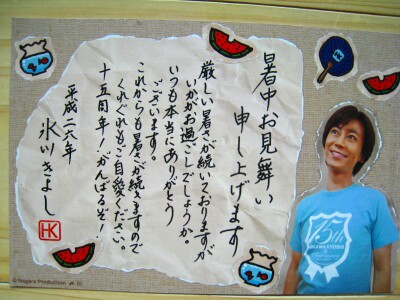 暑中お見舞い
申し上げます
厳しい暑さが続いておりますが
いかがお過ごしでしょうか。
いつも本当にありがとう
ございます。
これからも暑さが続きますので
くれぐれもご自愛ください。
十五周年!がんばるぞ!
平成二六年
氷川きよし
HK
HK
15th
HIKAWA KIYOSHI
© Nagara Production